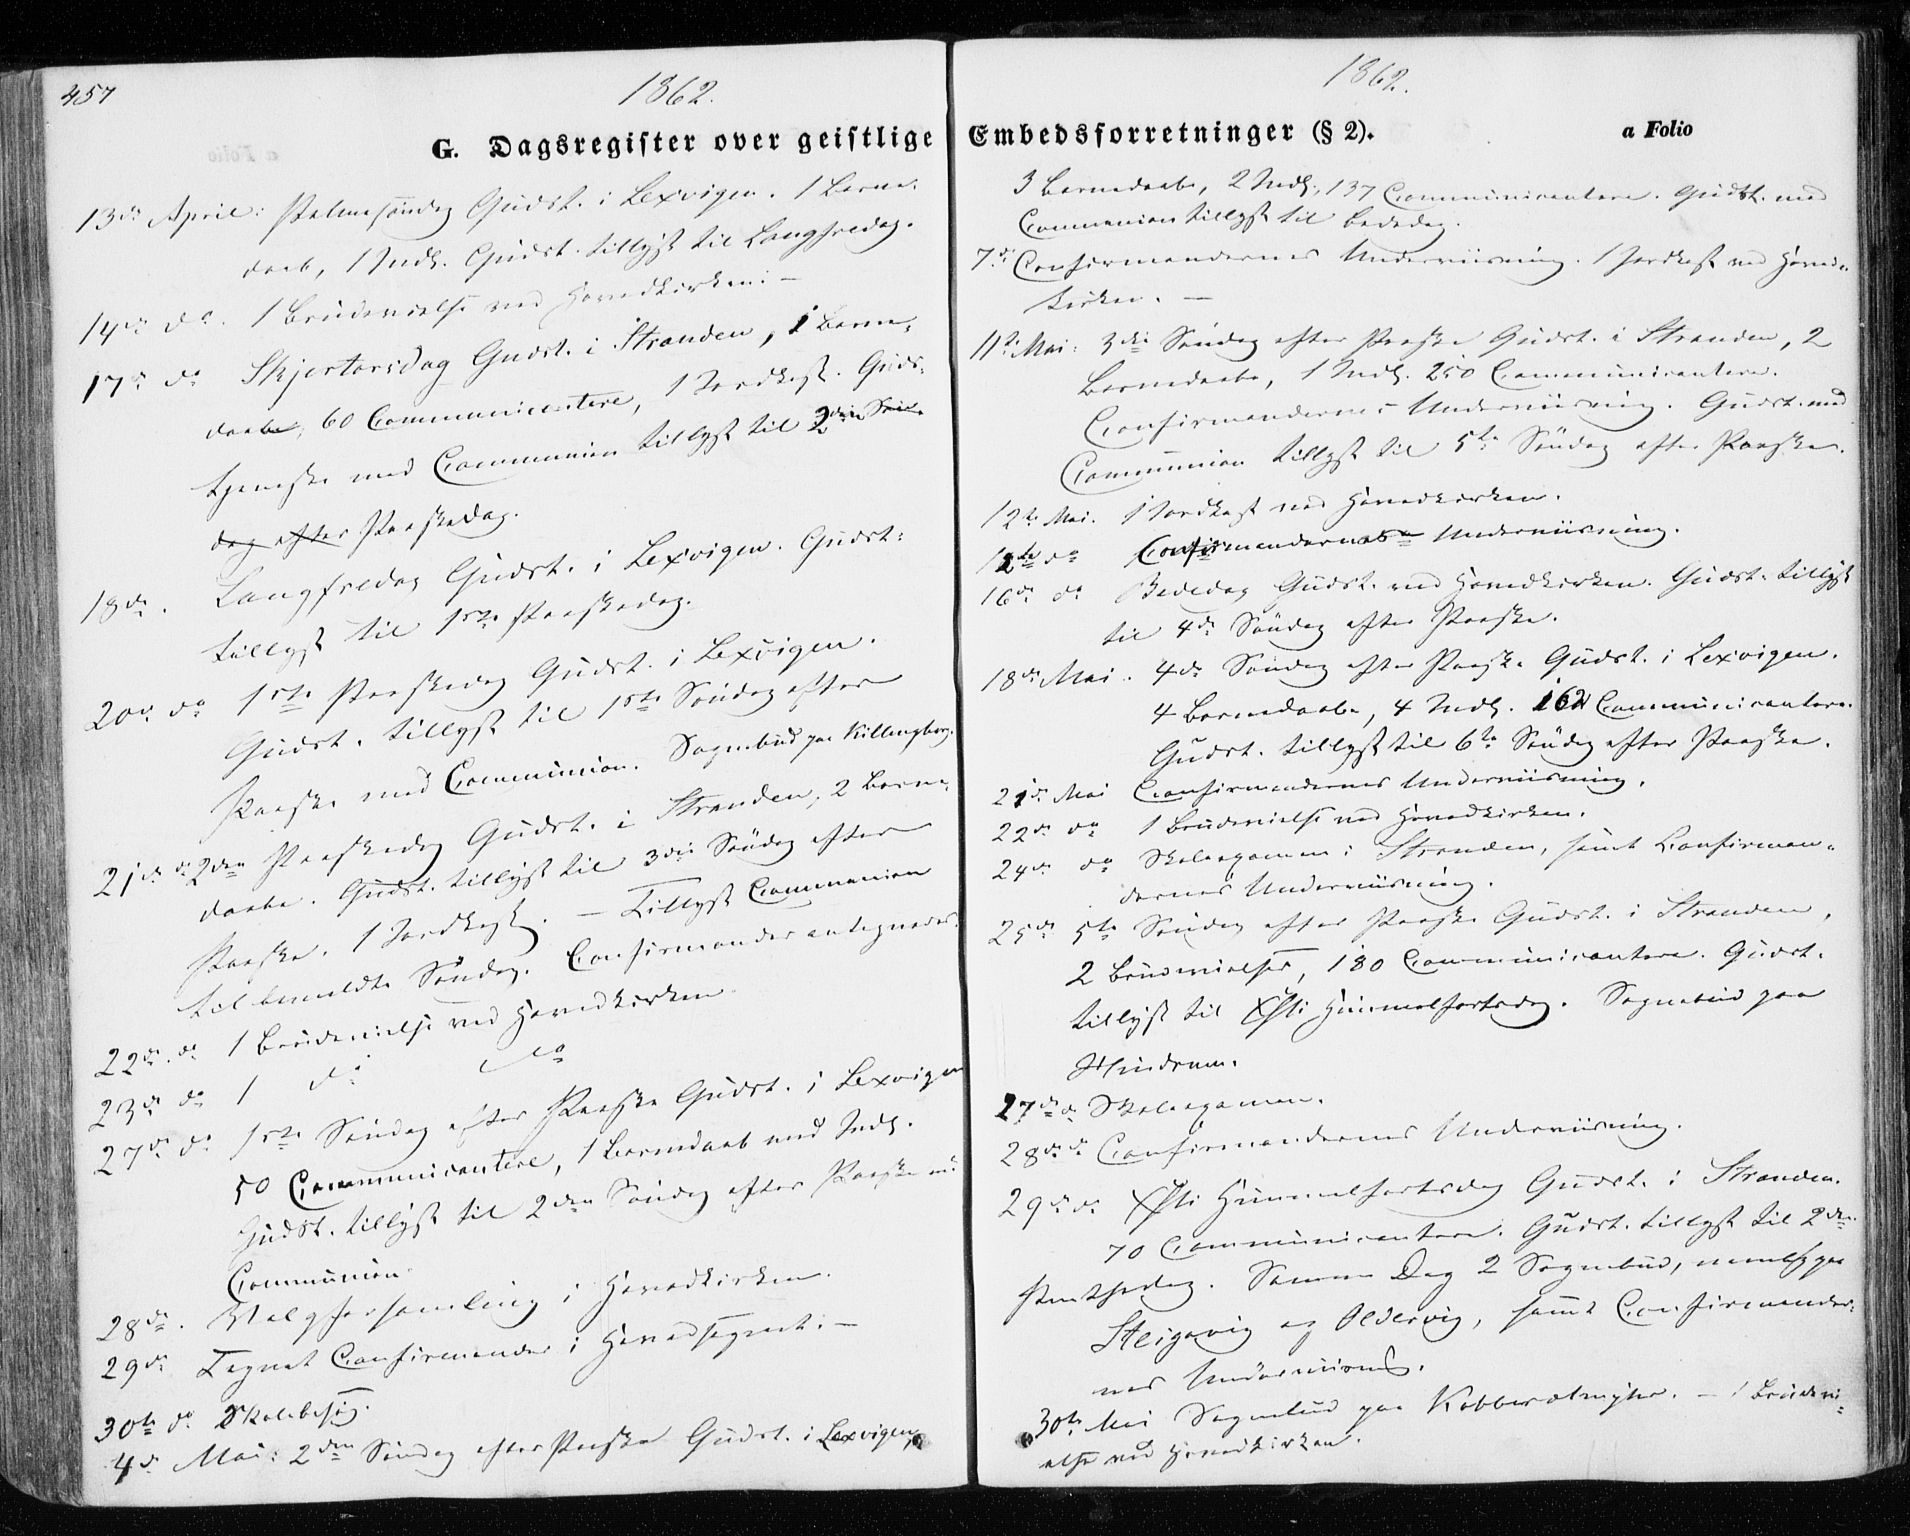 457
1862.
G. Dagsregister over geistlige
13de April: Palmesøndag Gudst. i Lexvigen. 1 Barne-
daab, 1 Indl. Gudst. tillyst til Langfredag.
14de do. 1 Brudevielse ved Hovedkirken. —
17de do Skjertorsdag Gudst. i Stranden, 1 Barne-
daab, 60 Communicantere, 1 Jordkast. Guds-
tjeneste med Communion tillyst til 2den Søn-
dag efter Paaskedag.
18de. Langfredag Gudst. i Lexvigen. Gudst:
tillyst til 1ste Paaskedag.
20de do 1ste Paaskedag Gudst. i Lexvigen.
Gudst. tillyst til 1ste Søndag efter
Paaske med Communion. Sognebud paa Killingberg.
21de do 2den Paaskedag Gudst. i Stranden, 2 Barne-
daabe. Gudst. tillyst til 3die Søndag efter
Paaske. 1 Jordkast. — Tillyst Communion
til bemeldte Søndag. Confirmander antegnedes.
22de do 1 Brudevielse ved Hovedkirken
23de do 1 do do
27de do 1ste Søndag efter Paaske Gudst. i Lexvigen
50 Communicantere, 1 Barnedaab med Indl.
Gudst. tillyst til 2den Søndag efter Paaske m:
Communion.
28de. Valgforsamling i Hovedkirken.
29de Tegnet Confirmander i Hovedsognet. —
30te do Skolebesøg.
4de Mai: 2den Søndag efter Paaske Gudst. i Lexvigen,
1862.
Embedsforretninger (§ 2).
a Folio
3 Barnedaabe, 2 Indl., 137 Communicantere. Gudst. med
Communion tillyst til Bededag.
7de Confirmandernes Underviisning. 1 Jordkast ved Hoved-
kirken. —
11te Mai: 3die Søndag efter Paaske Gudst. i Stranden, 2
Barnedaabe, 1 Indl. 250 Communicantere.
Confirmandernes Underviisning. Gudst. med
Communion tillyst til 5te Søndag efter Paaske.
12te Mai. 1 Jordkast ved Hovedkirken.
do Confirmandernes Underviisning.
16de do Bededag Gudst. ved Hovedkirken. Gudst. tillyst
til 4de Søndag efter Paaske.
18de Mai. 4de Søndag efter Paaske Gudst. i Lexvigen.
4 Barnedaabe, 4 Indl. 162 Communicantere.
Gudst. tillyst til 6te Søndag efter Paaske.
21de Mai Confirmandernes Underviisning.
22de do 1 Brudevielse ved Hovedkirken.
24de do Skoleexamen i Stranden, samt Confirman-
dernes Underviisning.
25de 5te Søndag efter Paaske Gudst. i Stranden,
2 Brudevielser, 180 Communicantere. Gudst.
tillyst til Xsti Himmelfartsdag. Sognebud paa
Hindrum.
27de do Skoleexamen.
28de do Confirmandernes Underviisning.
29de do Xsti Himmelfartsdag Gudst. i Stranden.
70 Communicantere. Gudst. tillyst til 2den
Pintsedag. Samme Dag 2 Sognebud, nemlig paa
og Oldervig, samt Confirmander-
nes Underviisn.
30te Mai Sognebud paa — 1 Brudevi-
else ved Hovedkirken.